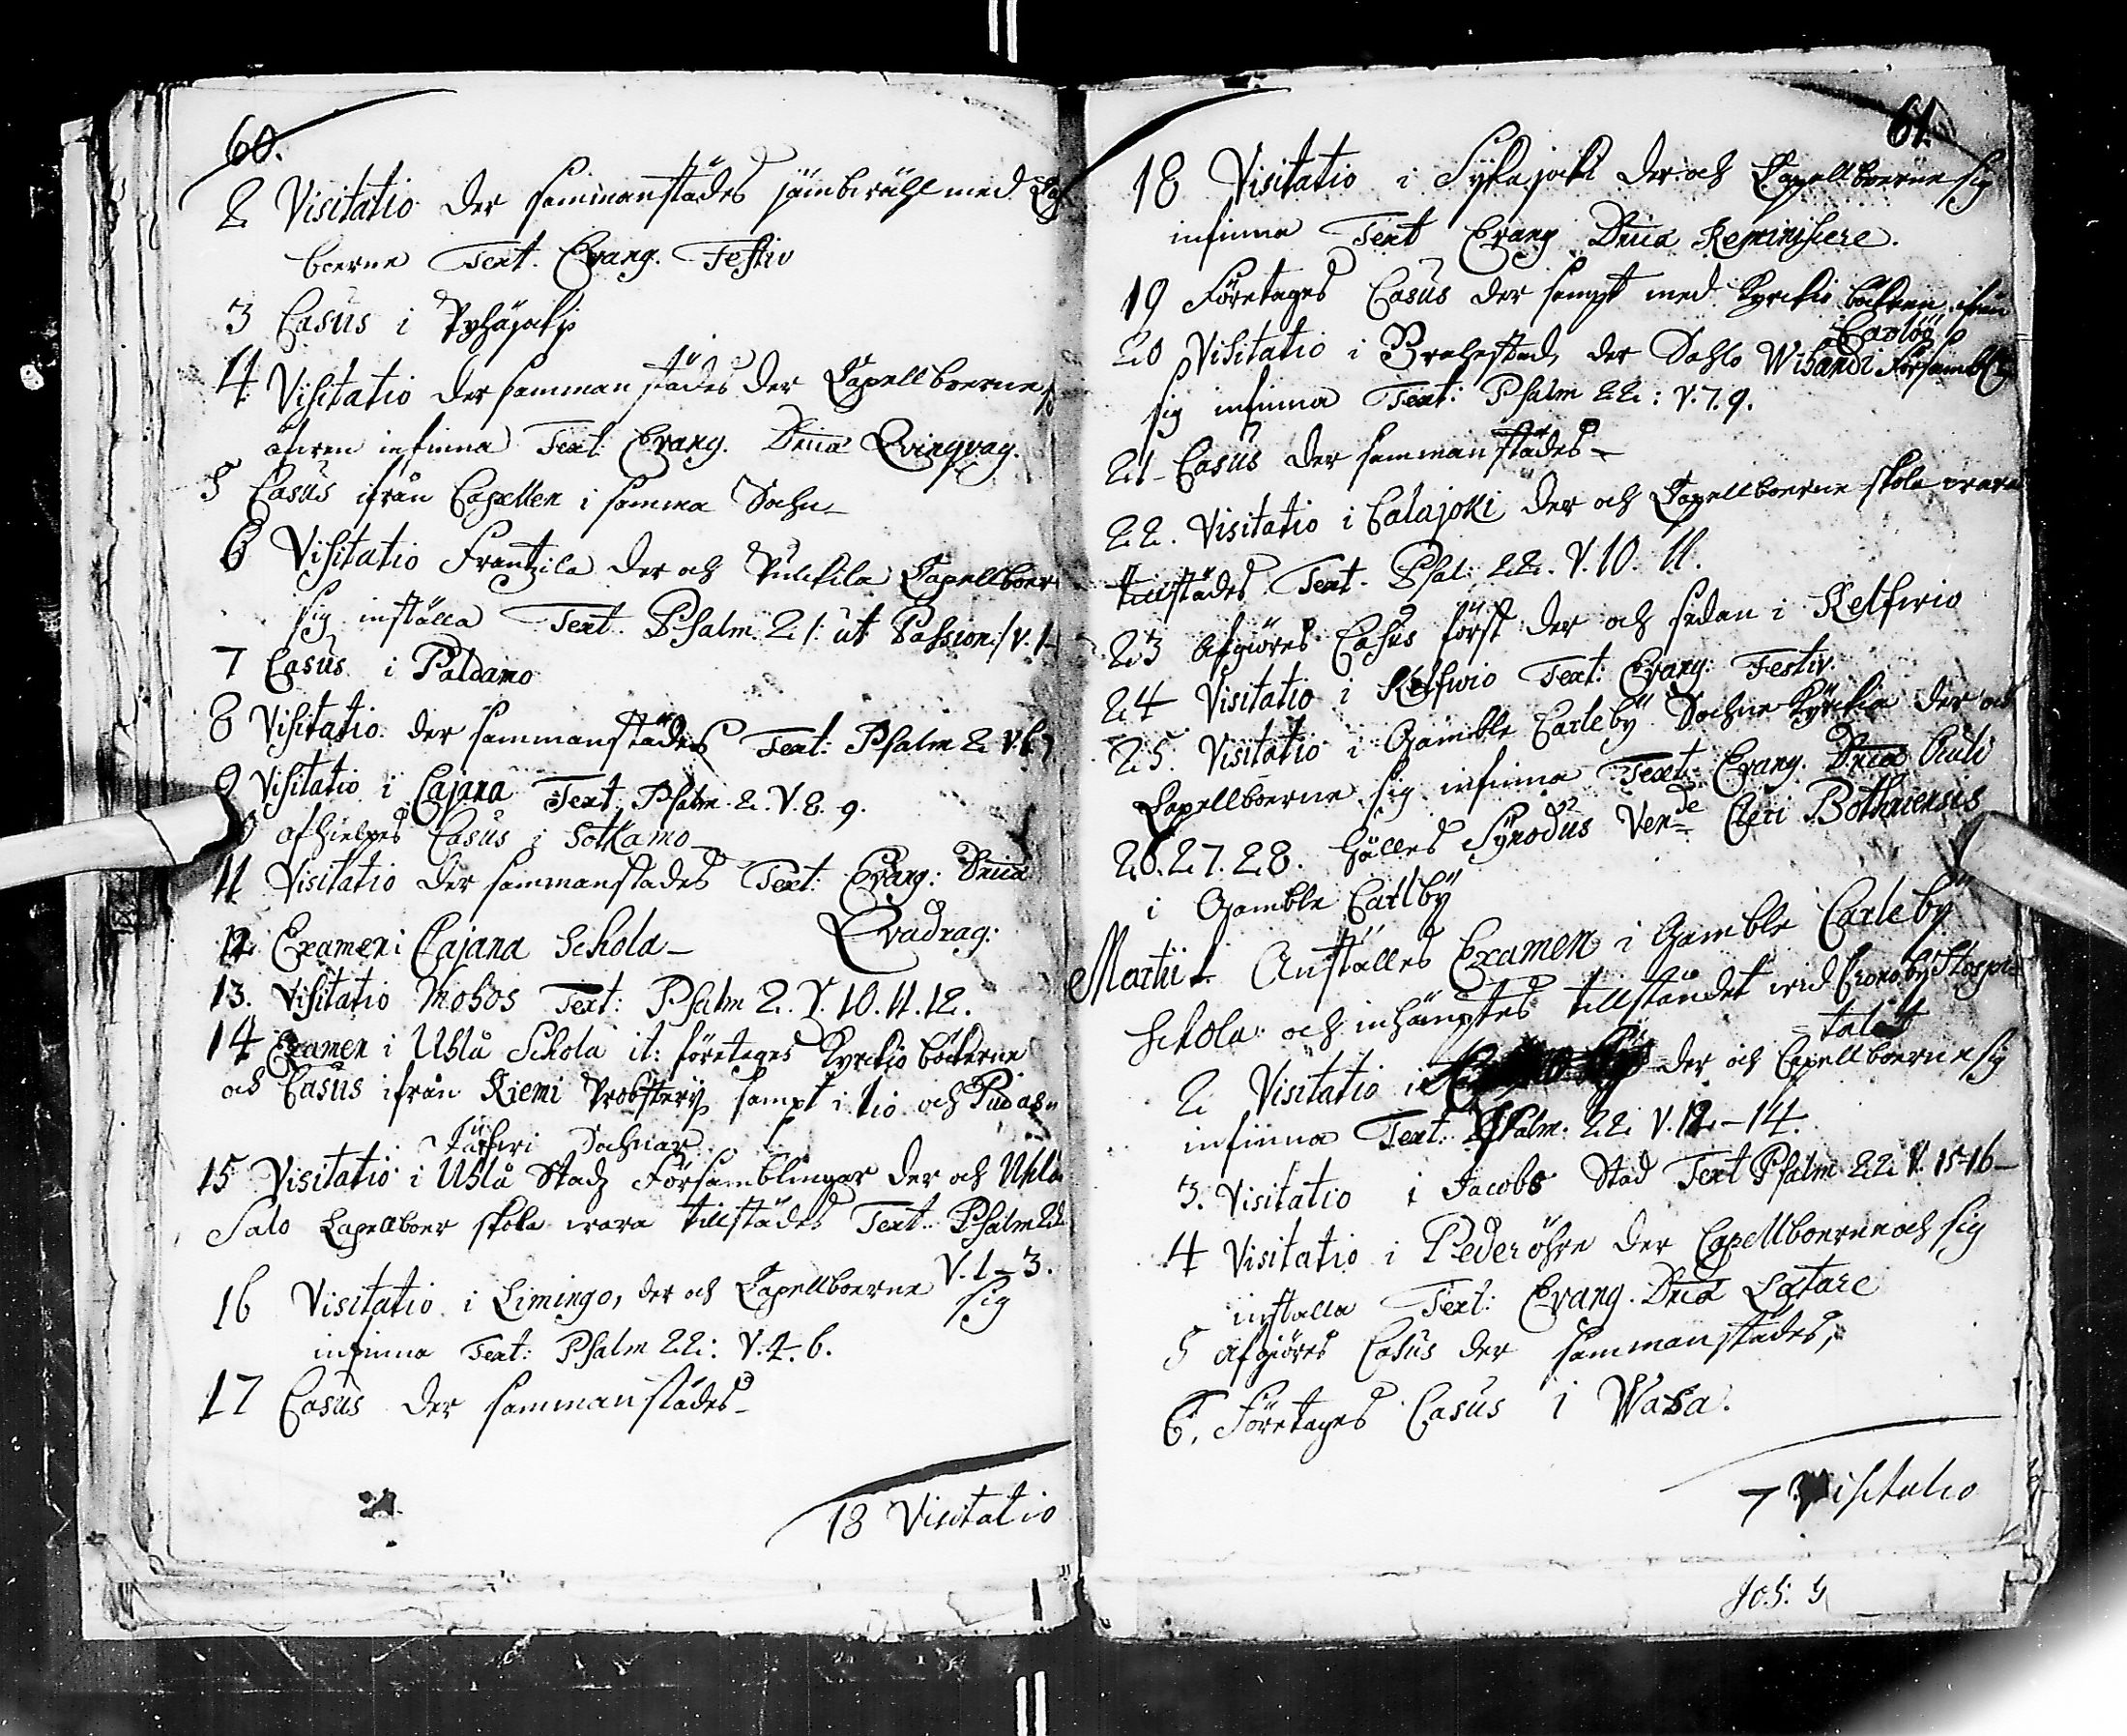 60.
2 Visitatio der sammanstädes jämbwähl med Cap
boerne Text. Evang. Festiv
3 Casus i Pyhäjocki
4 Visitatio der sammanstädes der Capellboerne
infinna Text: Evang. Dnica Qvinqvag.
5 Casus ifrån Capellen i samma Sochn
6 Visitatio Frantzila der och Pulckila Capellboer
sig inställa Text. Psalm. 21: ut Passion: / v. 1
7 Casus i Paldamo
8 Visitatio der sammanstädes Text: Psalm 2. V. 6 7
9 Visitatio i Cajana Text. Psalm. 2. V. 8. 9.
afhielpes Casus i Sotkamo
11 Visitatio der sammanstades Text: Evang: Dnica
Qvadrag:
12 Examen i Cajana Schola
13. Visitatio Mohos Text: Psalm 2. V. 10. 11. 12.
14 Examen i Uhlå Schola it: företages Kyrckio böckerne
och Casus ifrån Kiemi Probsterij sampt i Iio och Pudas-
jerfwi Sochnar
15 Visitatio i Uhlå Stadz Församblingar der och Uhla
Salo Capellboer skola wara tillstädes Text. Psalm 22
V. 1-3.
16 Visitatio i Limingo, der och Capellboerne sig
infinna Text: Psalm 22: V. 4. 6.
17 Casus der sammanstädes
18 Visitatio
61.
18 Visitatio i Sijkajocki der och Capellboerne sig
infinna Text Evang Dnica Reminiscere.
19 Företages Casus der sampt med Kyrckio böckren ifrån
Carlöö
20 Visitatio i Brahestad, der Sahlo Wihandi Försambl
sig infinna Text: Psalm 22: V. 7. 9.
21 Casus der sammanstädes
22. Visitatio i Calajoki der och Capellboerne skola wara
tillstädes Text. Psal: 22. V. 10. 11.
23 Afgiöres Casus först der och sedan i Kelfwio
24 Visitatio i Kelfwio Text: Evang: Festiv.
25. Visitatio i Gamble Carleby Sochne Kyrckia der och
Capellboerne sig infinna Text: Evang. Dnica Oculi
26. 27. 28. hålles Synodus Ven:de Cleri Bothniensis
i Gamble Carlby
Martii 1. Anställes Examen i Gamble Carleby
Schola och inhämptes tillståndet wid Cronoby Hospi-
talet
2 Visitatio i der och Capellboerne sig
infinna Text: Psalm. 22 V. 12-14.
3. Visitatio i Jacobs Stad Text Psalm 22: V. 15-16
4 Visitatio i Pederöhre der Capellboerne och sig
installa Text: Evang. Dnica Lætare
5 Afgiöres Casus der sammanstädes,
6. Företages Casus i Wasa.
7 Visitatio